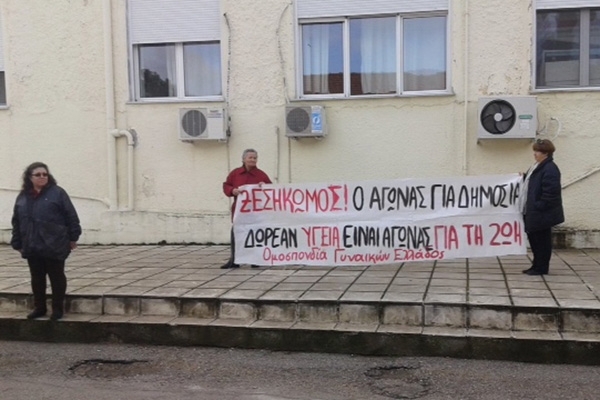 ΞΕΣΗΚΩΜΟΣ! Ο ΑΓΩΝΑΣ ΓΙΑ ΔΗΜΟΣΙΑ
ΔΩΡΕΑΝ ΥΓΕΙΑ ΕΙΝΑΙ ΑΓΩΝΑΣ ΓΙΑ ΤΗ ΖΩΗ
Ομοσπονδία Γυναικών Ελλάδος